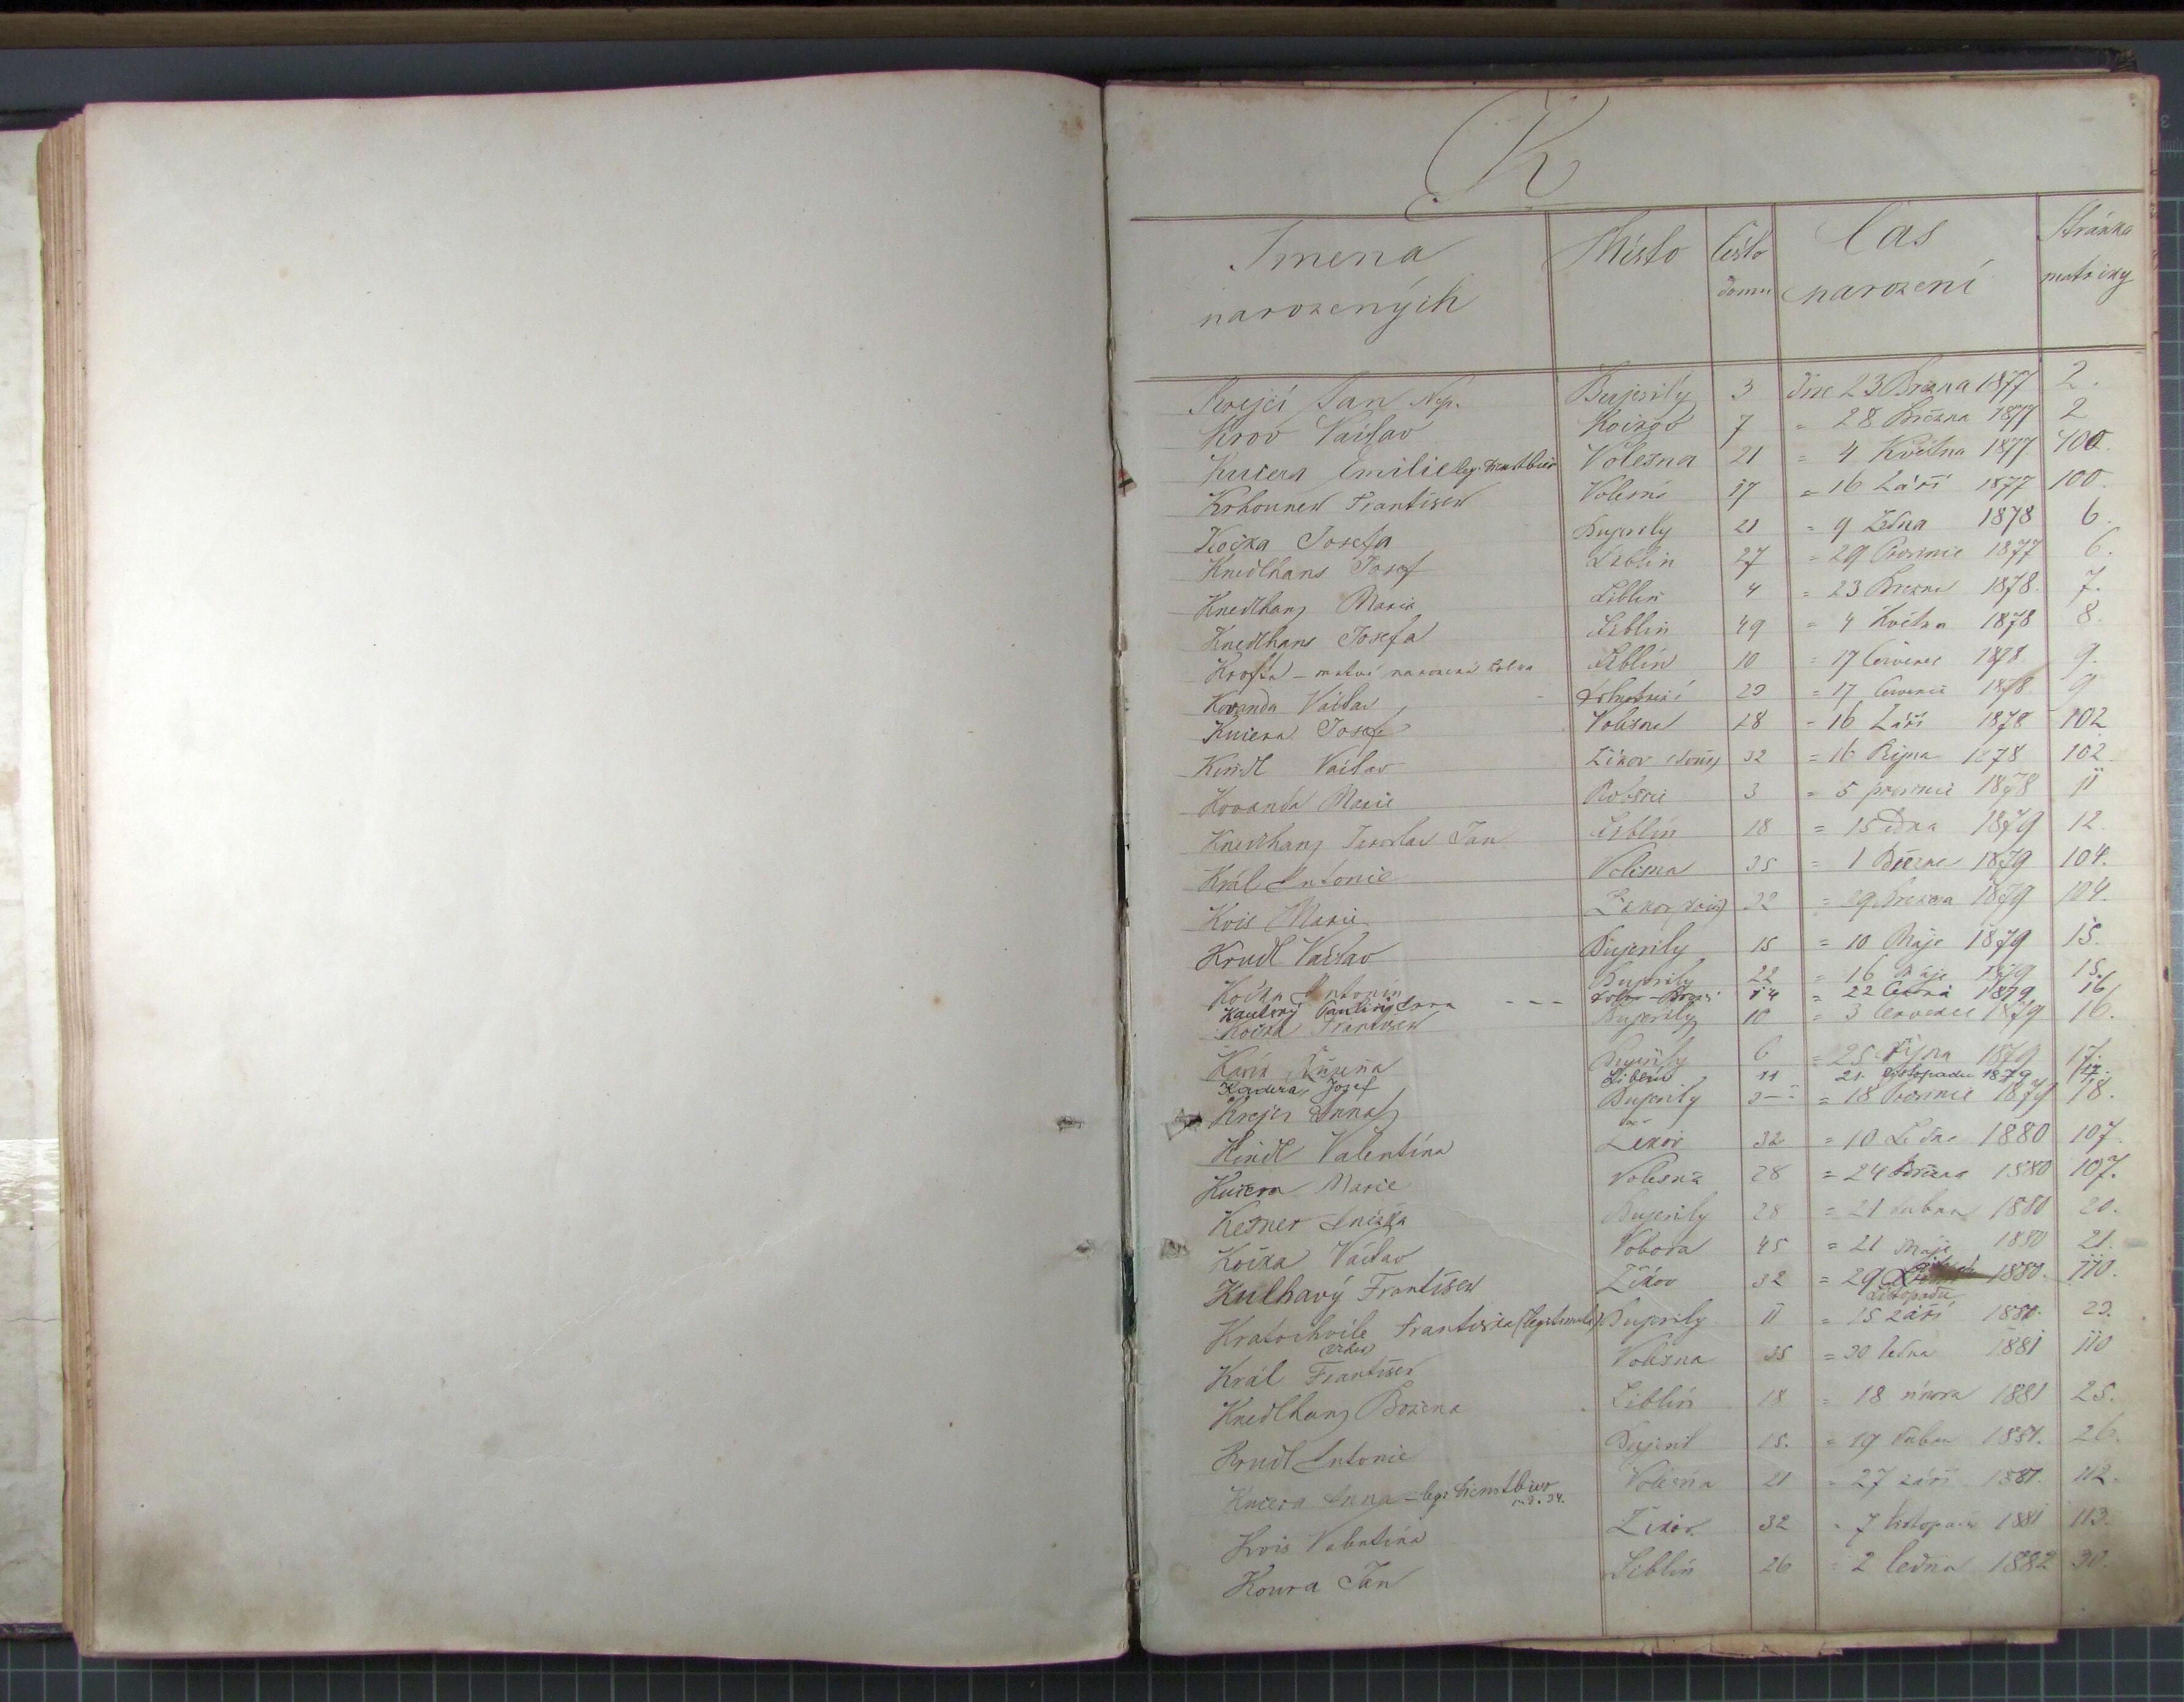 K
Jmena narozených Místo Číslo domu Čas narození Stránka matriky
Krejčí Jan Nep. Bujesily 3 dne 23 Března 1877 2.
Krov Václav 7 = 28 Března 1877 2
Kučera Emilie leg. Volesna 21 = 4 Května 1877 100.
Krhounek František Volesná 17 = 16 Září 1877 100.
Kočka Josefa Bujesily 21 = 9 Ledna 1878 6.
Knedlhans Josef Liblín 27 = 29 Prosince 1877 6.
Knedlhans Marie Liblín 4 = 23 Března 1878. 7.
Knedlhans Josefa Liblín 49 = 4 Května 1878 8.
Krofta - mrtvě narozená Liblín 10 = 17 Července 1878 9.
Kovanda Václav = 17 Července 1878. 9
Kučera Josef Volesna 28 = 16 Září 1878 102
Kindl Václav Žikov 32 = 16 Října 1878 102
Kovanda Marie 3 = 5 prosince 1878 11
Knedlhans Jaroslav Jan Liblín 18 = 15 ledna 1879 12.
Král Antonie Volesna 35 = 1 Března 1879 104.
Kvis Marie Žikov 32 = 29 Března 1879 104.
Krudl Václav Bujesily 15 = 10 Máje 1879 15.
Kočka Antonín Bujesily 22 = 16 Máje 1879 15.
Kautský Anna --- 14 = 22 1879 16
Kočka František Bujesily 10 = 3 Července 1879 16.
Bujesily 6 = 25 Října 1879 17.
Kadera Josef Liblín 11 21. Listopadu 1879 17.
Krejčí Anna Bujesily 3 = 18 Prosince 1879 18.
Kindl Valentina Žikov 32 = 10 Ledna 1880 107.
Kučera Marie Volesna 28 = 24 Března 1880 107.
Kesner Anežka Bujesily 28 = 21 dubna 1880 20.
Kočka Václav Vobora 45 = 21 Máje 1880 21.
Kulhavý František Žikov 32 = 29 Listopadu 1880. 110.
Kratochvíle Františka Bujesily 11 = 15 září 1880. 23.
Král František Volesna 35 = 30 ledna 1881 110
Knedlhans Božena Liblín 18 = 18 února 1881 25.
Krudl Antonie Bujesil 15. = 19 dubna 1881. 26.
Kučera Anna - leg. Volesna 21 = 27 září 1881. 112.
Kvis Valentina Žikov 32 = 7 listopadu 1881 113.
Koura Jan Liblín 26 = 2 ledna 1882 30.